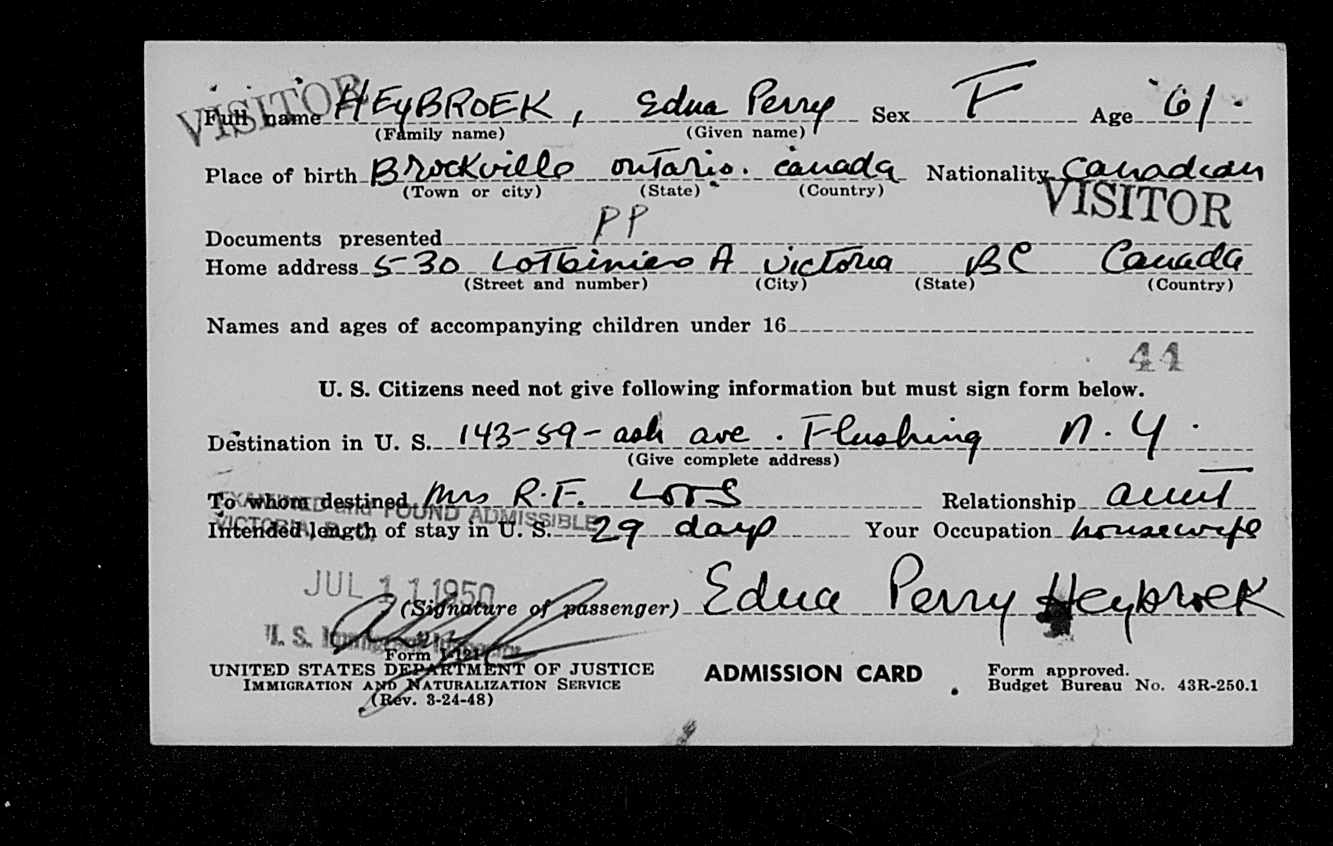 VISITOR
Full name HEyBROEK, Edna Perry Sex F Age 61.
(Family name) (Given name)
Place of birth Brockville ontario. canada Nationality Canadian
(Town or city) (State) (Country)
VISITOR
Documents presented PP
Home address 530 Lotbiniere A victoria BC Canada
(Street and number) (City) (State) (Country)
Names and ages of accompanying children under 16
44
U. S. Citizens need not give following information but must sign form below.
Destination in U. S. 143-59-ash ave. Flushing N.Y.
(Give complete address)
To whom destined Mrs R.F. Lots Relationship aunt
EXAMINED and FOUND ADMISSIBLE
VICTORIA, B.C.
Intended length of stay in U. S. 29 days Your Occupation housewife
JUL 11 1950
(Signature of passenger) Edna Perry Heybroek
U. S. Immigrant Inspector
Form I-121
UNITED STATES DEPARTMENT OF JUSTICE ADMISSION CARD Form approved.
IMMIGRATION AND NATURALIZATION SERVICE Budget Bureau No. 43R-250.1
(Rev. 3-24-48)